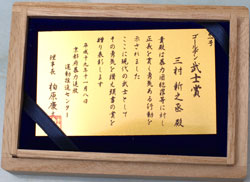 ゴールデン武士賞
三村新之丞殿
貴殿は暴力追放等に対し
正義を貫く勇気ある行動を
示されました
ここに現代の武士として
その勇気を讃え頌書の賞を
贈り表彰します
平成十九年十一月八日
京都府暴力追放
運動推進センター
理事長 柏原康夫